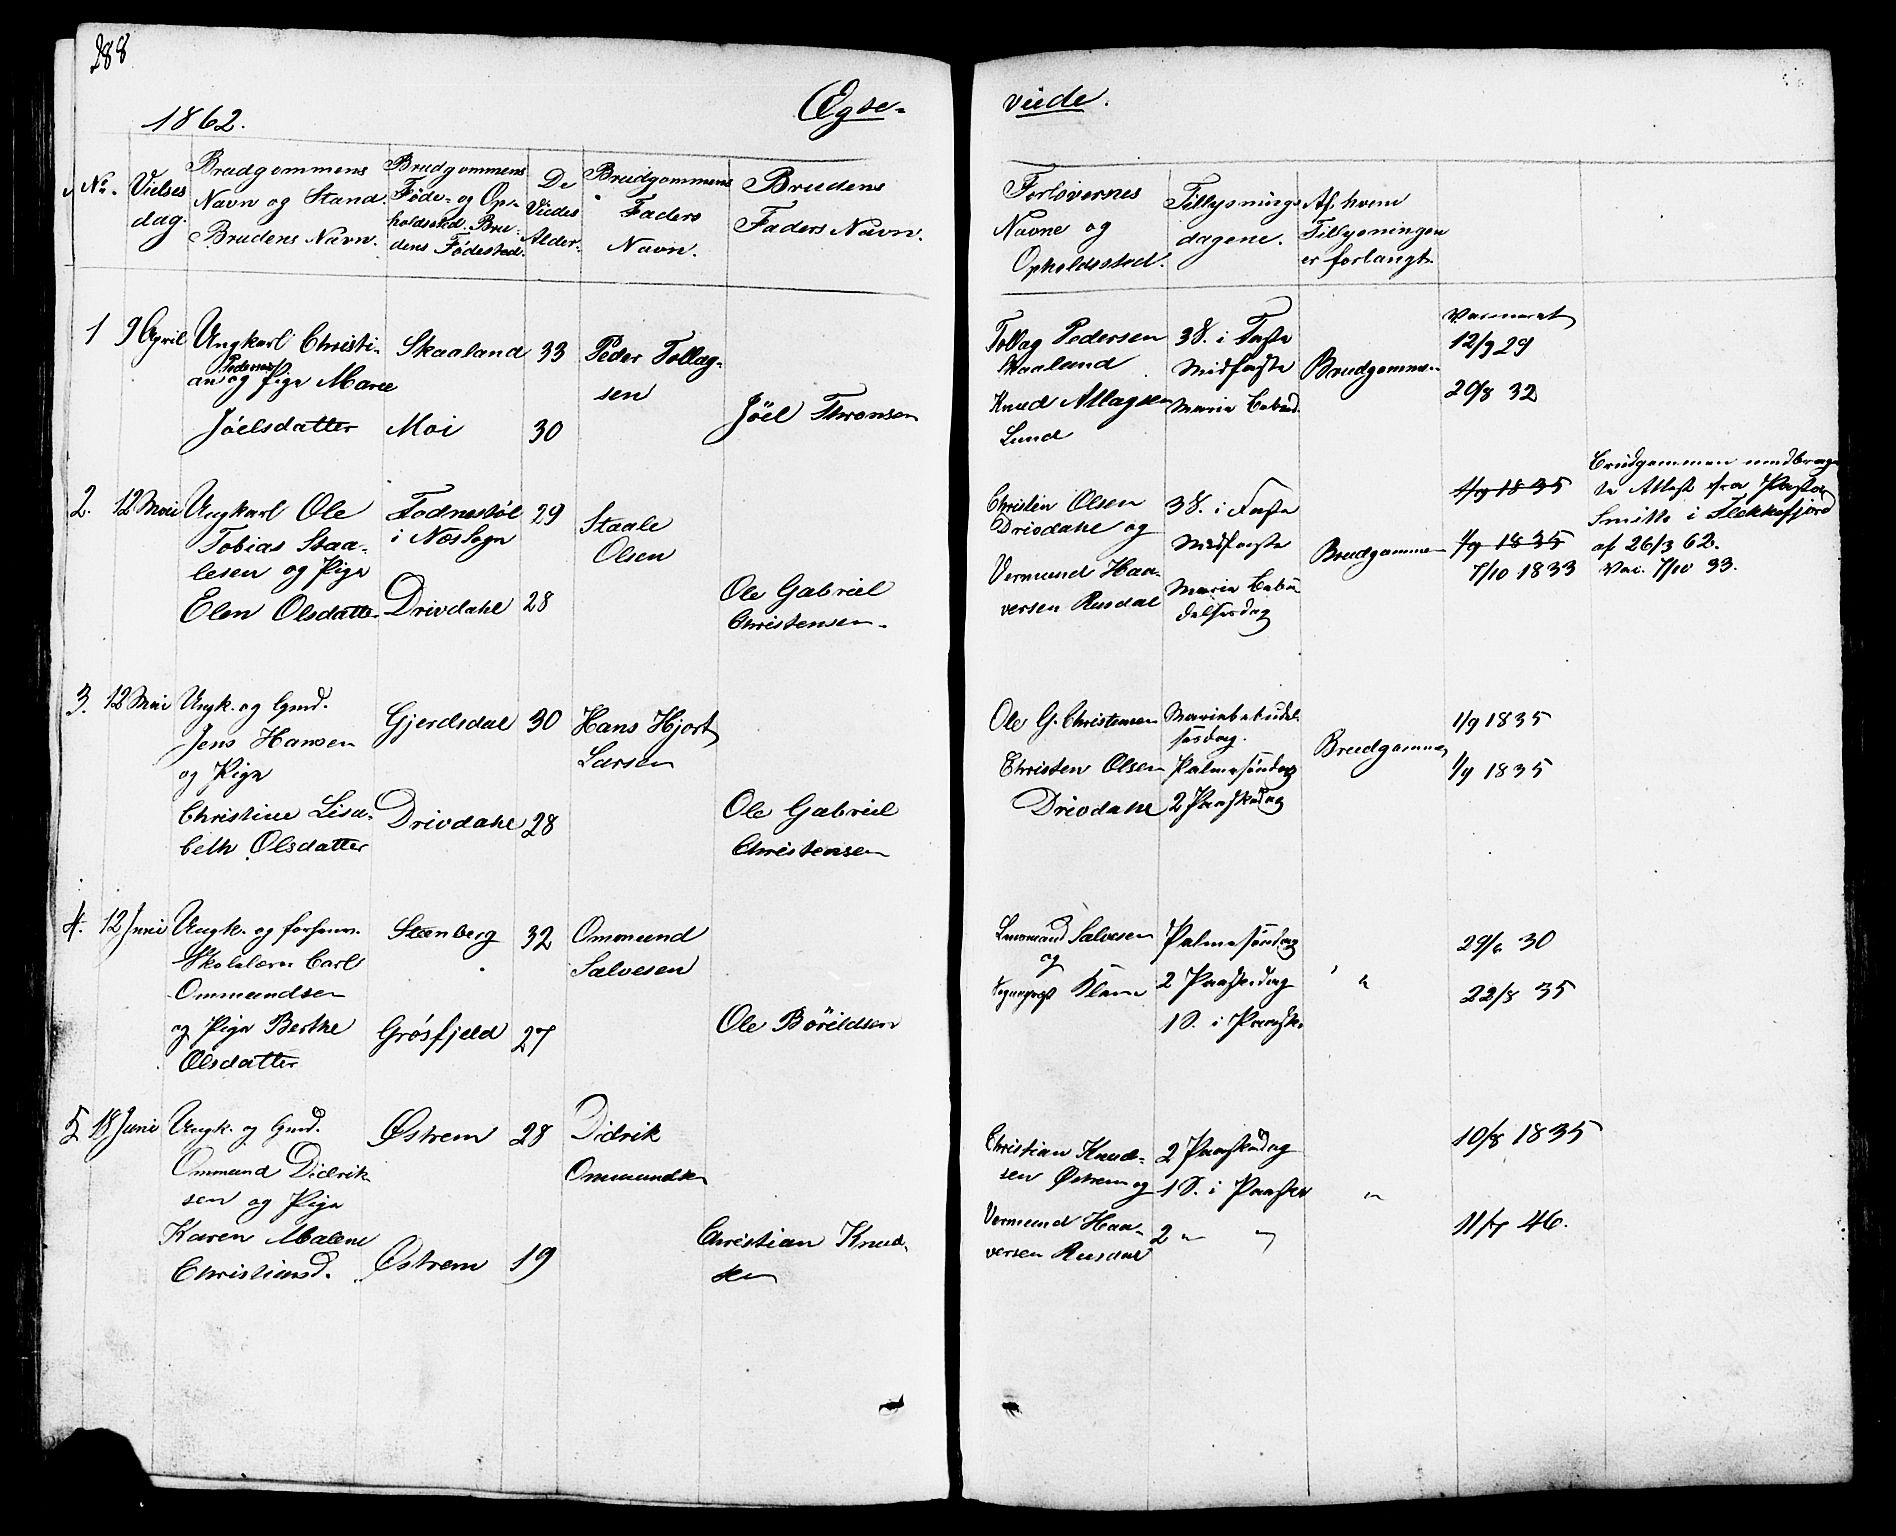 288
1862.
Ægte-
viede.
No.
Vielses
dag.
Brudgommens
Navn og Stand.
Brudens Navn.
Brudgommens
Føde- og Op-
holdssted. Bru-
dens Fødested.
De
Viedes
Alder.
Brudgommens
Faders
Navn.
Brudens
Faders Navn.
Forlovernes
Navne og
Opholdssted.
Tillysnings
dagene.
Af hvem
Tillysningen
er forlangt.
Vaccineret
1
9 April
Ungkarl Christi-
Pedersen
an og Pige Marie
Jöelsdatter
Skaaland
Moi
33
30
Peder Tollag-
sen
Jöel Thronsen
Tollag Pedersen
Skaaland
Knud Atlagsen
Lund
3 S. i Faste
Midfaste
Maria Bebud.
Brudgommen
12/9 29
20/8 32
2.
12 Mai
Ungkarl Ole
Tobias Staa-
lesen og Pige
Elen Olsdatter
Fodnestøl
i Næs Sogn
Drivdahl
29
28
Staale
Olsen
Ole Gabriel
Christensen.
Christen Olsen
Drivdahl og
Vermund Haa-
versen Rusdal
3 S. i Faste
Midfaste
Maria Bebu
delsesdag
Brudgommen
1/9 1835
1/9 1835
7/10 1833
Brudgommen medbrag-
te Attest fra Pastor
Smith i Flekkefjord
af 26/3 62.
Vac. 7/10 33.
3.
12 Mai
Ungk. og Gmd.
Jens Hansen
og Pige
Christine Lisa-
beth Olsdatter
Gjerdsdal
Drivdahl
30
28
Hans Hjort
Larsen
Ole Gabriel
Christensen
Ole G. Christensen
Christen Olsen
Drivdahl
Mariabebudel
sesdag.
Palmesöndag
2 Paaskedag
Brudgommen
1/9 1835
1/9 1835
4.
12 Juni
Ungk. og forhenv.
Skolelærer Carl
Ommundsen
og Pige Berthe
Olsdatter
Steenberg
Grósfjeld
32
27
Ommund
Salvesen
Ole Böreldsen
Salvesen
og
Palmesöndag
2 Paaskedag
1 S. i Paaske
"
29/6 30
22/8 35
5
18 Juni
Ungk. og Gmd.
Ommund Didrik
sen og Pige
Karen Malene
Christiansd.
Østrem
Østrem
28
19
Didrik
Ommundsen
Christian Knud-
sen
Christian Knud-
sen Østrem og
Vermund Haa-
versen Rusdal
2 Paaskedag
1 S. i Paaske
2 " "
"
10/8 1835
11/7 46.